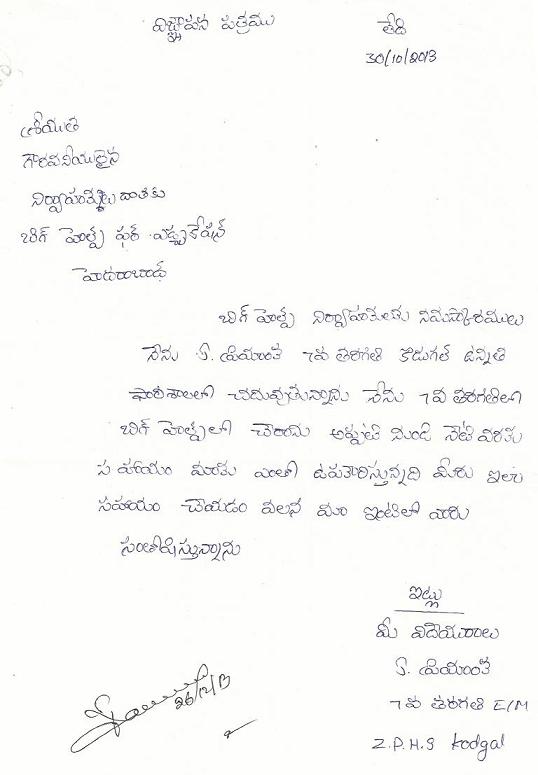 విజ్ఞాపన పత్రము
తేది
30/10/2013
శ్రీయుత
గౌరవనీయులైన
నిర్వాహకులు దాతకు
బిగ్ హెల్ప్ ఫర్ ఎడ్యుకేషన్
హైదరాబాద్
బిగ్ హెల్ప్ నిర్వాహకులకు నమస్కారములు
నేను పి. ప్రియాంక 7వ తరగతి కొడుగల్ ఉన్నత
పాఠశాలలో చదువుతున్నాను నేను 7వ తరగతిలో
బిగ్ హెల్ప్ లో చేరాను అప్పటి నుండి నేటి వరకు
సహాయం మాకు ఎంతో ఉపకరిస్తున్నది మీరు ఇలా
సహాయం చేయడం వలన మా ఇంటిలో వారు
సంతోషిస్తున్నారు
ఇట్లు
మీ విదేయురాలు
ప్రియాంక
7వ తరగతి E/M
Z.P.H.S Kodgal
26/12/13